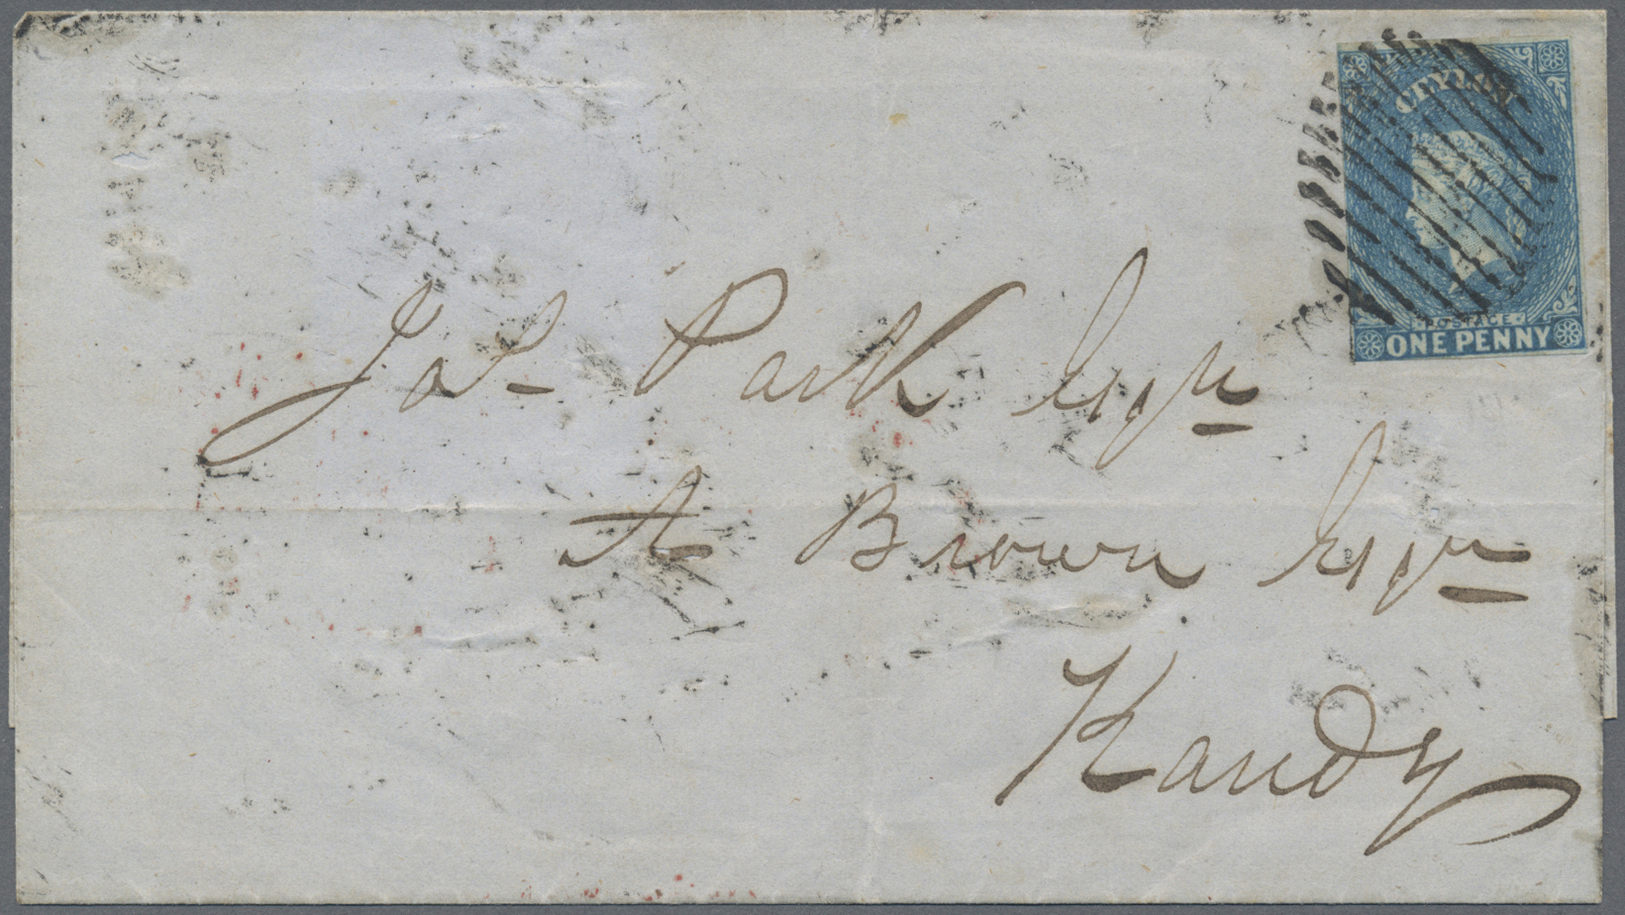 CEYLON
POSTAGE
ONE PENNY
Jas Park Esqr
A Brown Esqr
Kandy